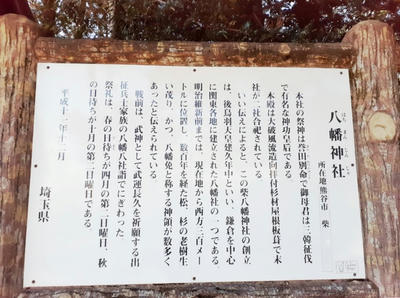 八幡神社
はち まん じん じゃ
所在地熊谷市 柴
本社の祭神は誉田別命で御母君は三韓征伐
で有名な神功皇后である
本殿は大破風流造向拝付杉材屋根板葺で末
社が二社合祀されている
いい伝えによると、この柴八幡神社の創立
は、後鳥羽天皇建久年中といい、鎌倉を中心
に関東各地に建立された八幡社の一つである。
明治維新前までは、現在地から西方三百メー
トルに位置し、数百年を経た松、杉の老樹生
い茂り、かつ、八幡免と称する神領が数多く
あったと伝えられている
戦前は、武神として武運長久を祈願する出
征兵士家族の八幡八社詣でにぎわった
祭礼は、春の日待ちが四月の第二日曜日、秋
の日待ちが十月の第二日曜日である。
平成十二年十二月
埼玉県